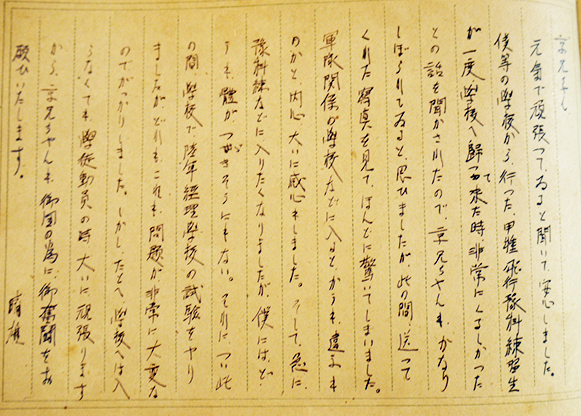 京兄ちゃん
元気で頑張つてゐると聞いて、安心しました。
僕等の學校から、行つた、甲種飛行豫科練習生
が一度、學校へ歸つて來た時非常にくるしかつた
との話を聞かされたので、京兄ちゃんも、かなり
しぼられてゐると、思ひましたが、此の間、送つて
くれた寫真を見て、ほんとに驚いてしまいました。
軍隊関係の學校などに入ると、かうも、違ふも
のかと、内心大いに感心しました。そして、急に、
豫科練などに入りたくなりましたが、僕には、ど
うも、體がつゞきさうにもない。それについ此
の間、學校で陸軍経理學校の試驗をやり
ましたが、どれもこれも、問題が非常に大変な
のでがつかりしました。しかし、たとへ、學校へは入
らなくても、學徒動員の時大いに頑張ります
から、京兄ちゃんも、御国の為に、御奮闘をお
願ひいたします。